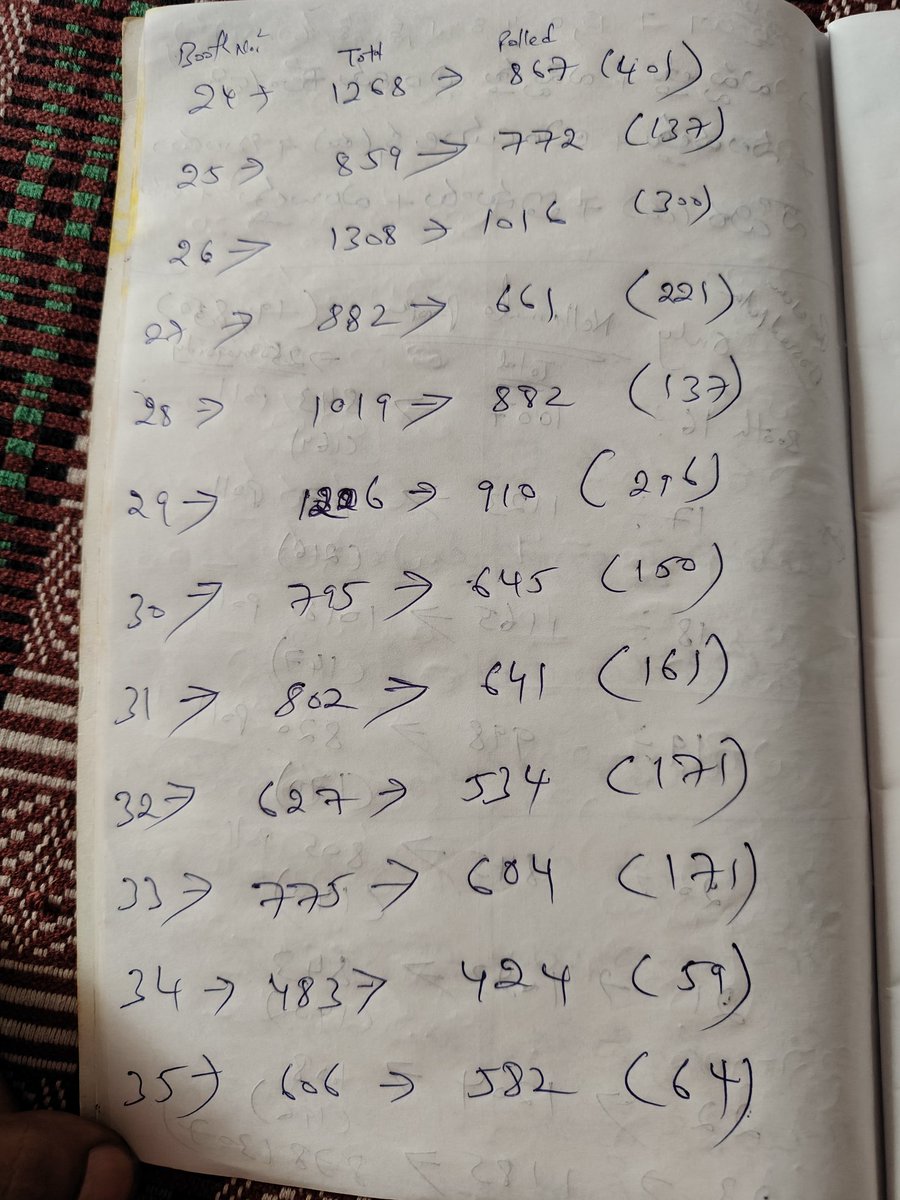 Booth No: Totl Polled
24 → 1268 → 867 (401)
25 → 859 → 772 (137)
26 → 1308 → 1016 (300)
27 → 882 → 661 (221)
28 → 1019 → 882 (137)
29 → 1226 → 910 (296)
30 → 795 → 645 (150)
31 → 802 → 641 (161)
32 → 627 → 534 (171)
33 → 775 → 604 (171)
34 → 483 → 424 (59)
35 → 606 → 582 (64)